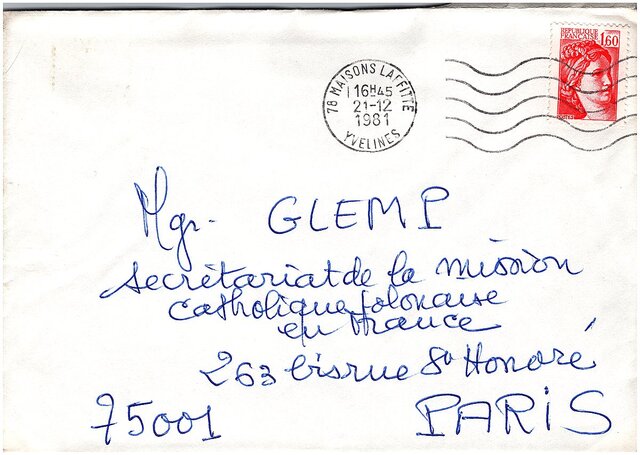 RÉPUBLIQUE
FRANÇAISE 1,60
78 MAISONS LAFFITTE
16H45
21-12
1981
YVELINES
Mgr. GLEMP
Secrétariat de la mission
catholique Polonaise
en France
263 bis rue St Honoré
75001 PARIS